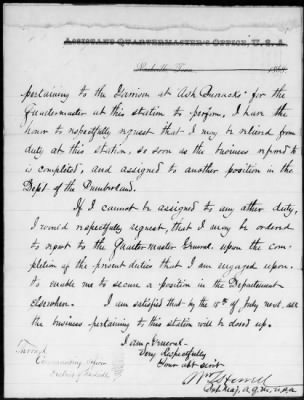 ASSISTANT QUARTERMASTER'S OFFICE, U.S.A
Nashville Tenn 186
pertaining to the Garrison at Ash Barracks for the
Quartermaster at this station to perform, I have the
honor to respectfully request that I may be relieved from
duty at this station, so soon as the business referred to
is completed, and assigned to another position in the
Dept. of the Cumberland.
If I cannot be assigned to any other duty,
I would respectfully request, that I may be ordered
to report to the Quarter Master General upon the com-
pletion of the present duties that I am engaged upon.
to enable me to secure a position in the Department
elsewhere. I am satisfied that by the 15th of July next, all
the business pertaining to this station will be closed up.
I am General
Very Respectfully
Your obt servt
Through
Commanding Officer
District of Nashville
A.Q.M, U.S.A